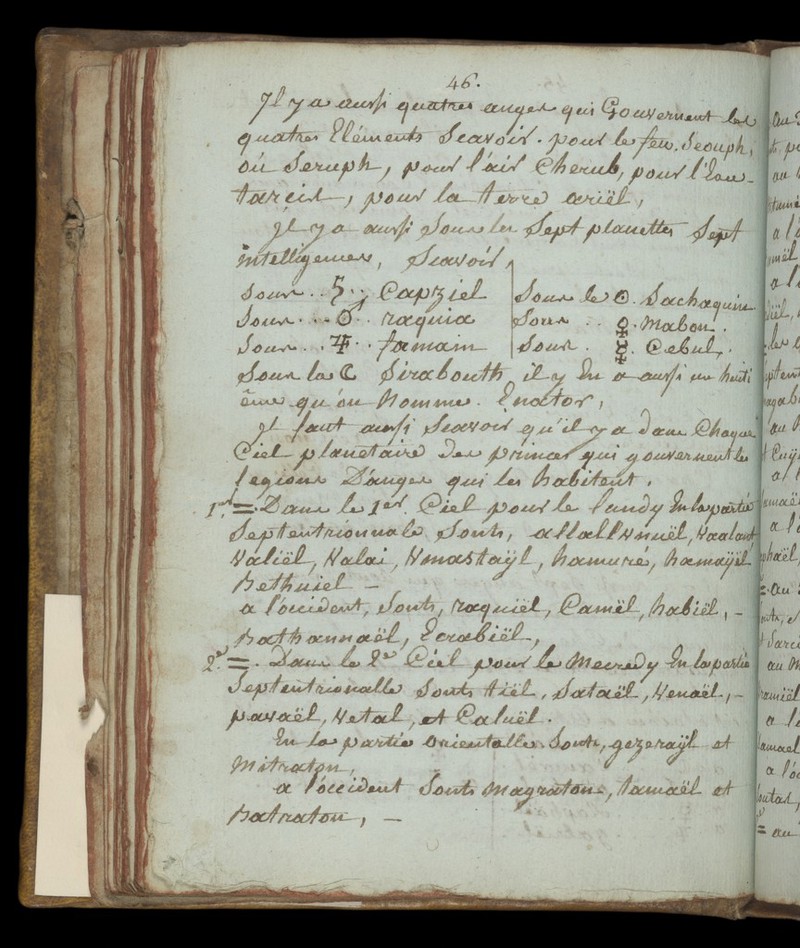 46.
Jl y a aussi quatres anges qui Gouvernent les
quatres Eléments Scavoir. pour le feu. Seouph,
où Seruph, pour l'air Cherub, pour l'Eau-
tarcis, pour la terre ariël,
jl y a aussi Sous les Sept planettes Sept
intelligences, Scavoir,
Sous .. ♄ .; Capziel
Sous ... ♂ .. raquia
Sous .. ♃ .. famam
Sous le ☉. Sachaquin
Sous .. ♀. Mabon.
Sous . ☿. Cebul.
Sous la ☾ Sirabouth il y En a aussi un huiti
ême qu'on Nomme. Enator,
jl faut aussi Scavoir qu'il y a dans Chaque
Ciel planetaire Des princes qui gouvernent les
legions D'anges qui les habitent.
1er = Dans le 1er Ciel pour le lundy En la partie
Septentrionnale Sonts,
Valiël, Valai, hamuré, hamayël
Bethuiel -
a l'occident, Sonts, raquiël, Camël, habiël, -
Bathannaël, Ecrabiël,
2e =. Dans le 2e Ciel pour le Mecredy En la partie
Septentrionalle Sonts tiël, Sataël, Venaël, -
pavaël, Vetal, et Caluël.
En la partie Orientalle. Sonts, gezerayl et
Mitraton,
a l'occident Sonts Magratons, tamaël et
Batraton, -